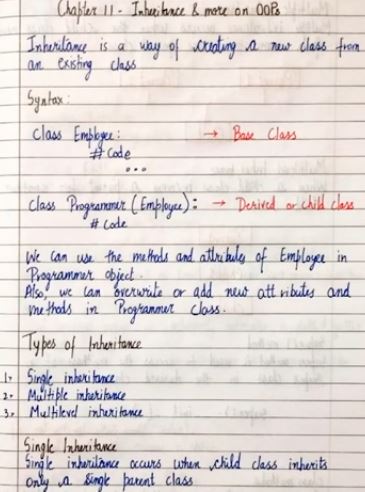 Chapter 11 - Inheritance & more on OOPs
Inheritance is a way of creating a new class from
an existing class
Syntax:
Class Employee: → Base Class
# Code
...
Class Programmer (Employee): → Derived or child class
# Code
We can use the methods and attributes of Employee in
Programmer object.
Also, we can overwrite or add new attributes and
methods in Programmer class.
Types of Inheritance
1. Single inheritance
2. Multiple inheritance
3. Multilevel inheritance
Single Inheritance
Single inheritance occurs when child class inherits
only a single parent class